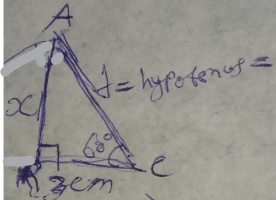 A
x
y = hypotenus =
60°
C
3cm